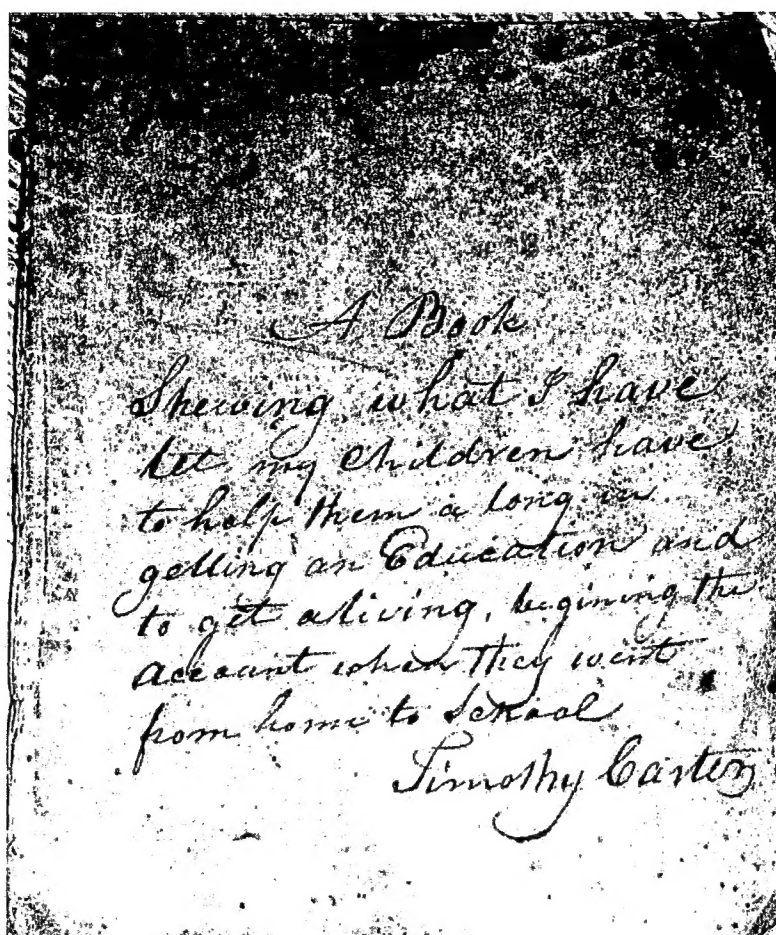 A Book
Shewing what I have
let my children have
to help them a long in
getting an Education and
to get a living, begining the
account when they went
from home to School
Timothy Carter